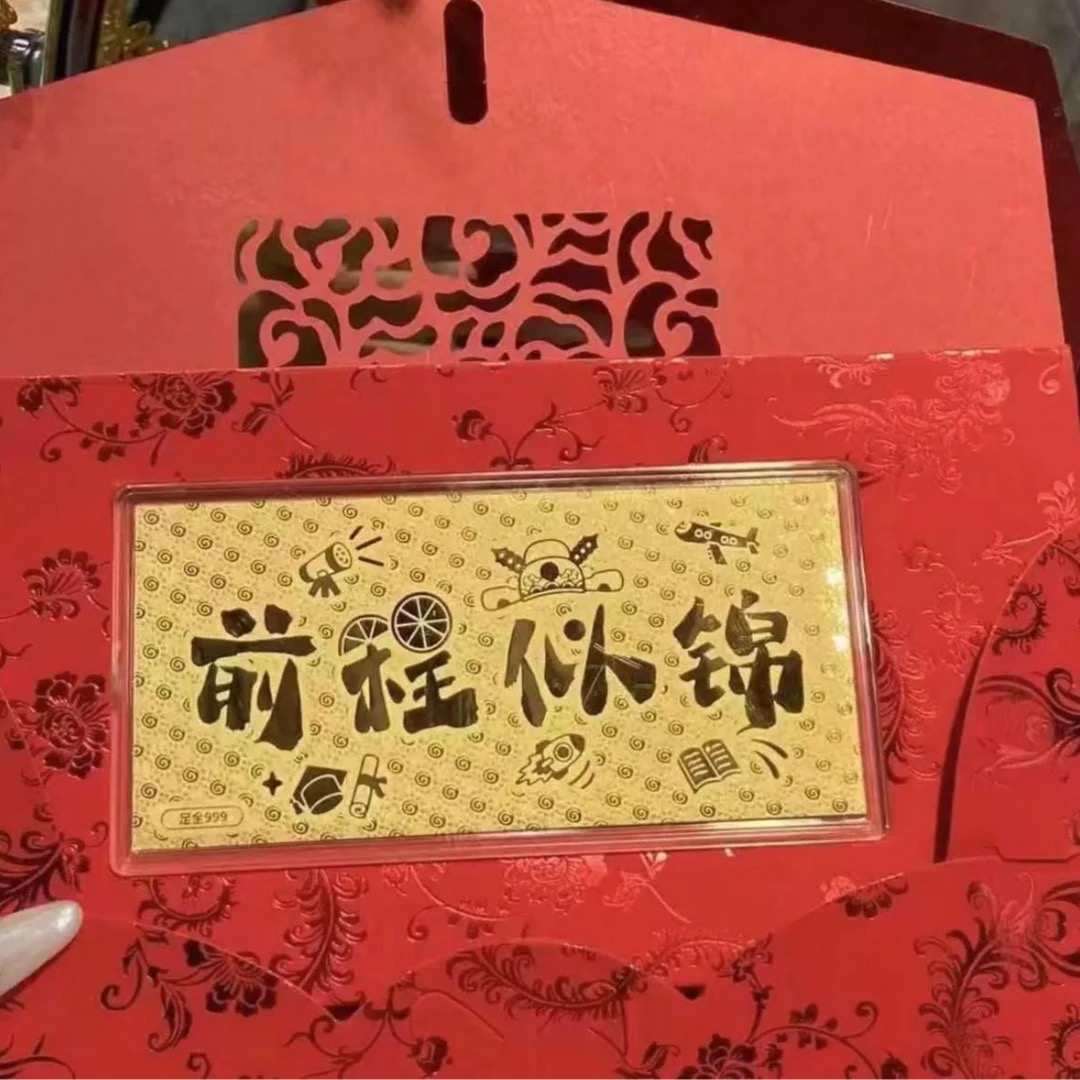 前程似锦
足金999